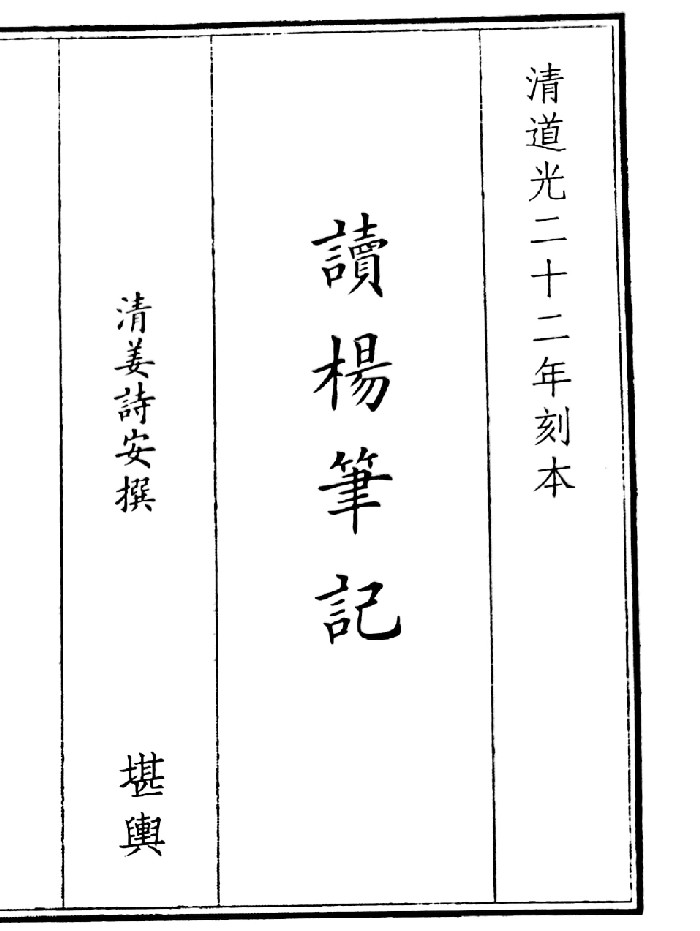 清道光二十二年刻本
讀楊筆記
清姜詩安撰
堪輿